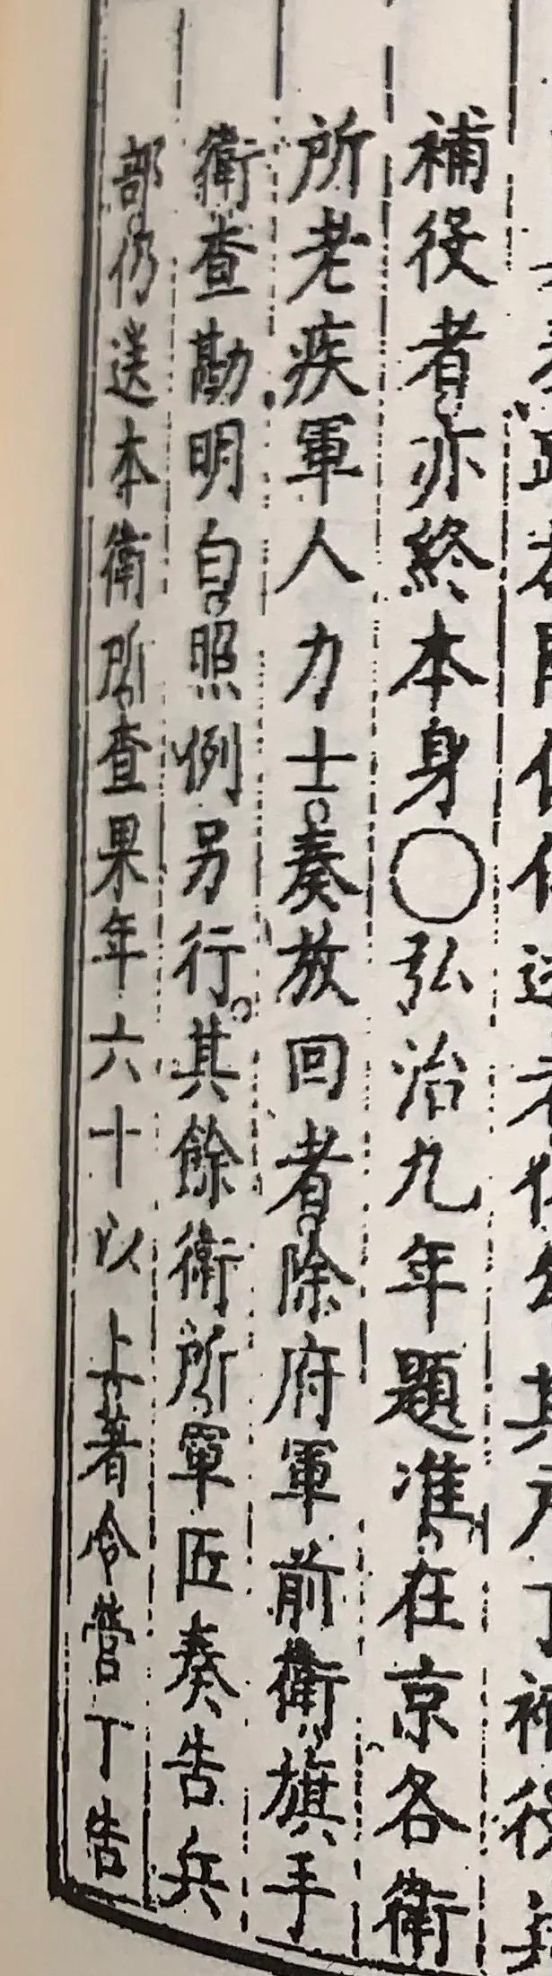 補役者亦終本身○弘治九年題准在京各衛
所老疾軍人力士奏放回者除府軍前衛旗手
衛查勘明白照例另行其餘衛所軍匠奏告兵
部仍送本衛所查果年六十以上著令營丁告